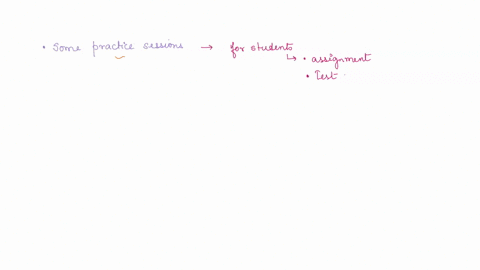 • Some practice sessions → for students
↳ • assignment
• Test